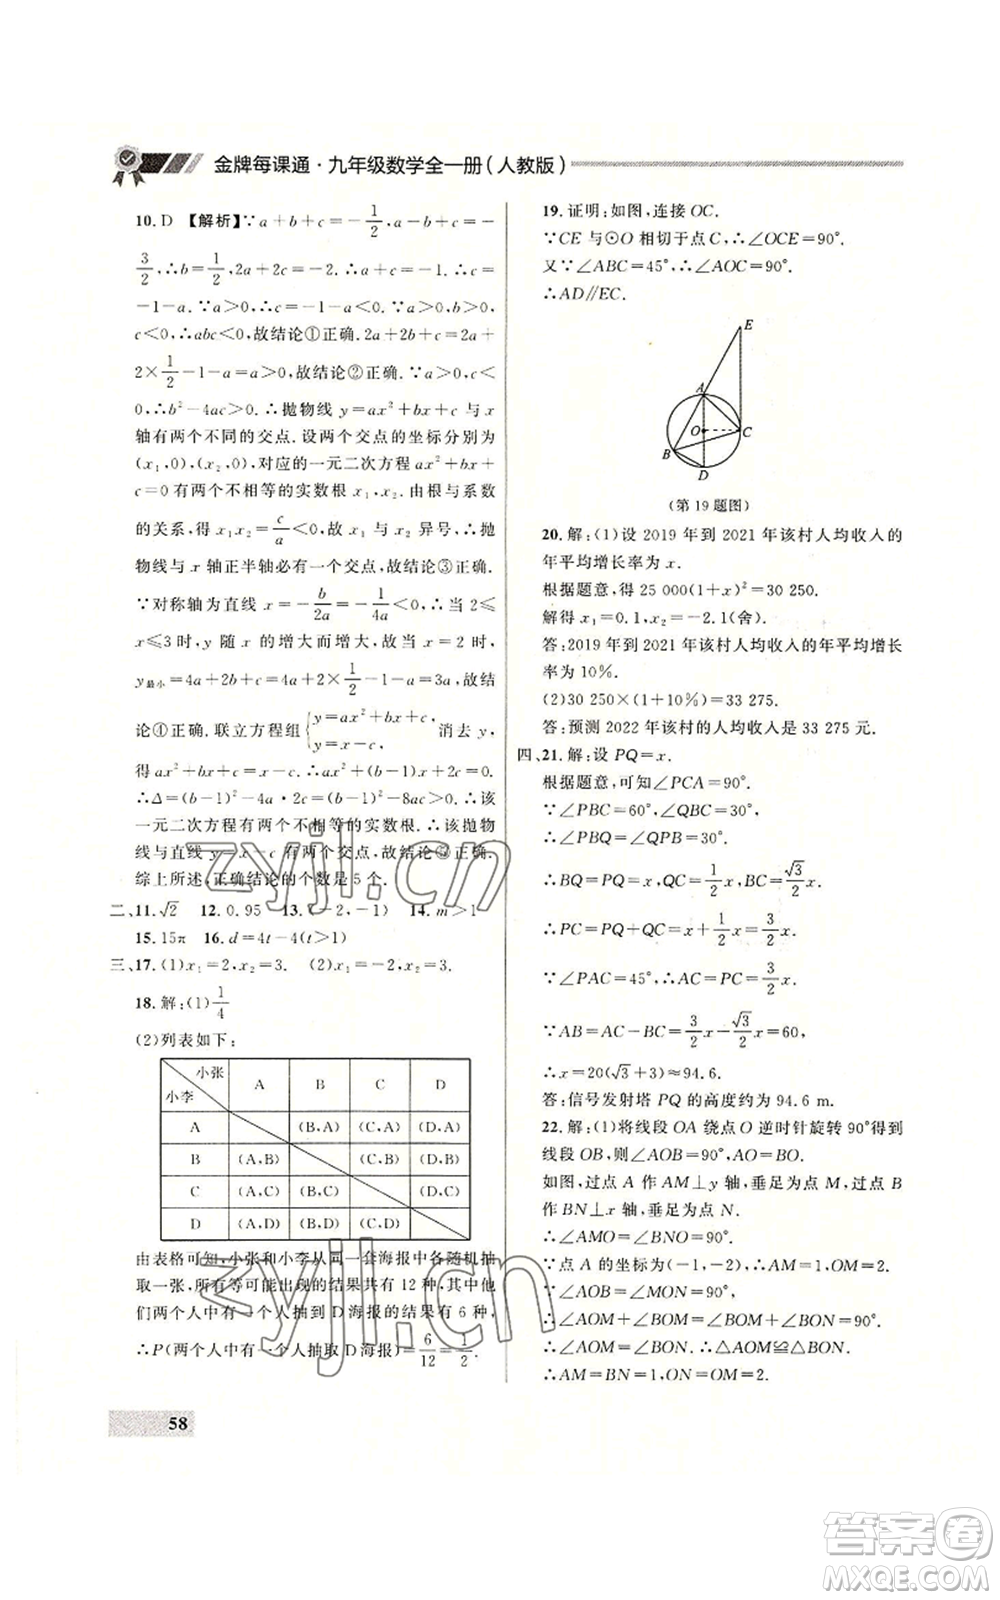 金牌每课通·九年级数学全一册(人教版)
10. D 【解析】∵a+b+c=-1/2, a-b+c=-
3/2,∴b=1/2,2a+2c=-2.∴a+c=-1.∴c=
-1-a.∵a>0,∴c<0.∴c=-1-a<0.∵b>
0,∴abc<0,故结论①正确. 2a+2b+c=2a+
2×1/2-1-a=a>0,故结论②正确.∵a>0,c<
0,∴b²-4ac>0.∴抛物线 y=ax²+bx+c 与 x
轴有两个不同的交点. 设两个交点的坐标分别为
(x₁,0),(x₂,0),对应的一元二次方程 ax²+bx+
c=0 有两个不相等的实数根 x₁,x₂.根与系数
的关系,得 x₁x₂=c/a<0,故 x₁与 x₂ 异号,∴抛
物线与 x 轴正半轴必有一个交点,故结论③正确.
∵对称轴为直线 x=-b/2a=-1/4a<0,∴当 2≤
x≤3 时,y 随 x 的增大而增大,故当 x=2 时,
y最小=4a+2b+c=4a+2×1/2-1-a=3a,故结
论①正确. 联立方程组{y=ax²+bx+c, y=x+c, 消去 y,
得 ax²+bx+c=x+c.∴ax²+(b-1)x=0.
∴Δ=(b-1)²-4a·0=(b-1)²-8ac>0.∴该
一元二次方程有两个不相等的实数根.∴该抛物
线与直线 y=x-c 有两个交点,故结论⑤正确.
综上所述,正确结论的个数是 5 个.
二、11.√2 12. 0.95 13. (-2,-1) 14. m>1
15. 15π 16. d=4t-4(t>1)
三、17. (1)x₁=2,x₂=3. (2)x₁=-2,x₂=3.
18. 解:(1)1/4
(2)列表如下:
小张 小李 A B C D
A (B,A) (C,A) (D,A)
B (A,B) (C,B) (D,B)
C (A,C) (B,C) (D,C)
D (A,D) (B,D) (C,D)
由表格可知,小张和小李从同一套海报中各随机抽
取一张,所有等可能出现的结果共有 12 种,其中他
们两个人中有一个人抽到 D 海报的结果有 6 种,
∴P(两个人中有一个人抽取 D 海报)=6/12=1/2.
58
19. 证明:如图,连接 OC.
∵CE 与⊙O 相切于点 C,∴∠OCE=90°.
又∵∠ABC=45°,∴∠AOC=90°.
∴AD∥EC.
E
A
O
C
B
D
(第 19 题图)
20. 解:(1)设 2019 年到 2021 年该村人均收入的
年平均增长率为 x.
根据题意,得 25 000(1+x)²=30 250.
解得 x₁=0.1,x₂=-2.1(舍).
答:2019 年到 2021 年该村人均收入的年平均增长
率为 10%.
(2)30 250×(1+10%)=33 275.
答:预测 2022 年该村的人均收入是 33 275 元.
四、21. 解:设 PQ=x.
根据题意,可知∠PCA=90°.
∵∠PBC=60°,∠QBC=30°,
∴∠PBQ=∠QPB=30°.
∴BQ=PQ=x.∴QC=1/2x,BC=√3/2x.
∴PC=PQ+QC=x+1/2x=3/2x.
∵∠PAC=45°,∴AC=PC=3/2x.
∵AB=AC-BC=3/2x-√3/2x=60,
∴x=20(√3+3)≈94.6.
答:信号发射塔 PQ 的高度约为 94.6 m.
22. 解:(1)将线段 OA 绕点 O 逆时针旋转 90°得到
线段 OB,则∠AOB=90°,AO=BO.
如图,过点 A 作 AM⊥y 轴,垂足为点 M,过点 B
作 BN⊥x 轴,垂足为点 N.
∴∠AMO=∠BNO=90°.
∵点 A 的坐标为(-1,-2),∴AM=1,OM=2.
∵∠AOB=∠MON=90°,
∴∠AOM+∠BOM=∠BOM+∠BON=90°.
∴∠AOM=∠BON.∴△AOM≌△BON.
∴AM=BN=1,ON=OM=2.
zyjl.cn
zyjl.cn
答案圈
MXQE.COM